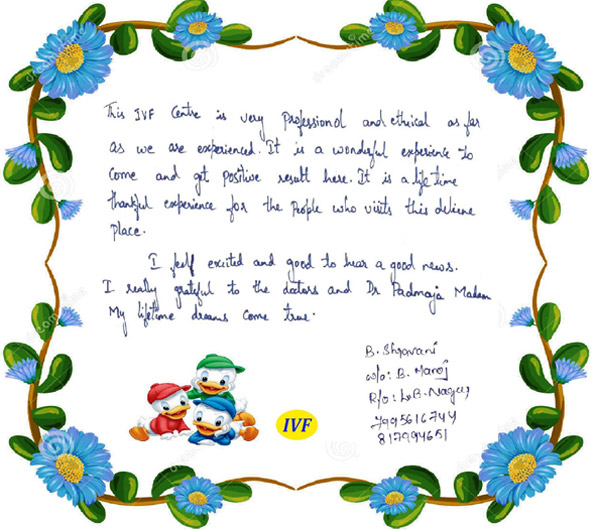 This IVF Centre is very Professional and ethical as far
as we are experienced. It is a wonderful experience to
come and get positive result here. It is a life time
thankful experience for the people who visits this devine
place.
I feel excited and good to hear a good news.
I really grateful to the doctors and Dr Padmaja Madam
My lifetime dreams come true.
B. Shravani
w/o: B. Manoj
R/o: L.B. Nagar
7995616744
817994651
IVF